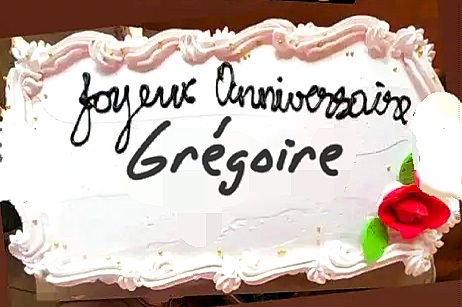 Joyeux Anniversaire
Grégoire